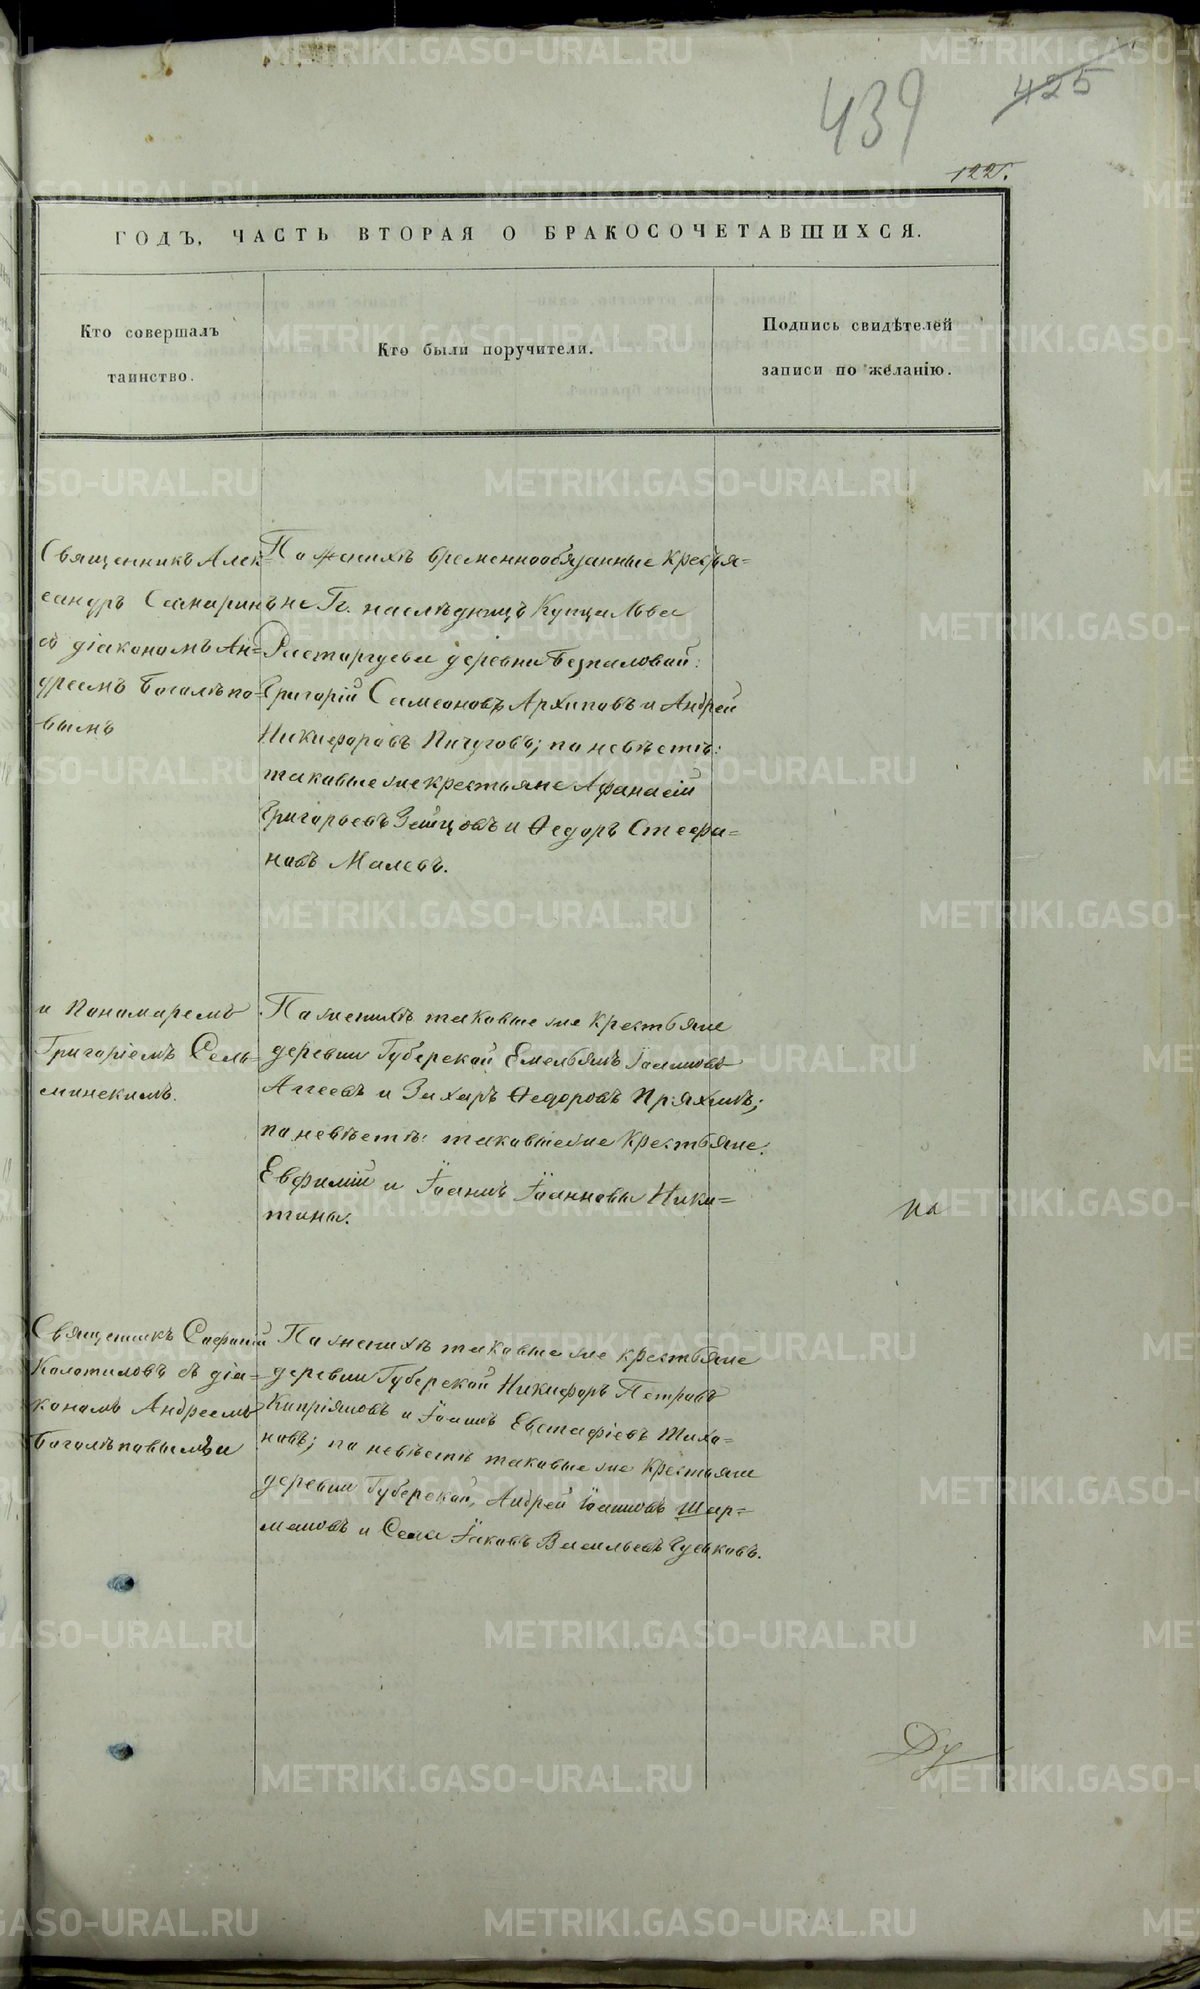 439
425
122.
ГОДЪ, ЧАСТЬ ВТОРАЯ О БРАКОСОЧЕТАВШИХСЯ.
Кто совершалъ
таинство.
Кто были поручители.
Подпись свидѣтелей
записи по желанію.
Священникъ Алек=
сандръ
съ діакономъ Ан=
дреемъ Боголѣпо=
вымъ
По женихѣ временнообязанные крестья=
не Гг. наслѣдницъ Купца Льва
Расторгуева деревни Безпаловой:
Григорій Самсоновъ Архиповъ и Андрей
Никифоровъ Пичуговъ; по невѣстѣ:
таковые же крестьяне Афанасій
Григорьевъ Зайцовъ и Ѳедоръ Стефа=
новъ Малевъ.
и Пономаремъ
Григоріемъ Сель=
менскимъ.
По женихѣ таковые же крестьяне
деревни Губерской Емельянъ Іоанновъ
Аггеевъ и Захаръ Ѳедоровъ Пряхинъ;
по невѣстѣ: таковые же крестьяне
Евфимій и Іоаннъ Іоанновы Ники=
тины.
по
Священникъ
съ діа=
кономъ Андреемъ
Боголѣповымъ и
По женихѣ таковые же крестьяне
деревни Губерской Никифоръ Петровъ
Кипріяновъ и Іоаннъ Евстафіевъ Тихо=
новъ; по невѣстѣ таковые же крестьяне
деревни Губерской, Андрей Іоанновъ Шар=
мановъ и Села Іаковъ Васильевъ Гуськовъ.
Ду
METRIKI.GASO-URAL.RU